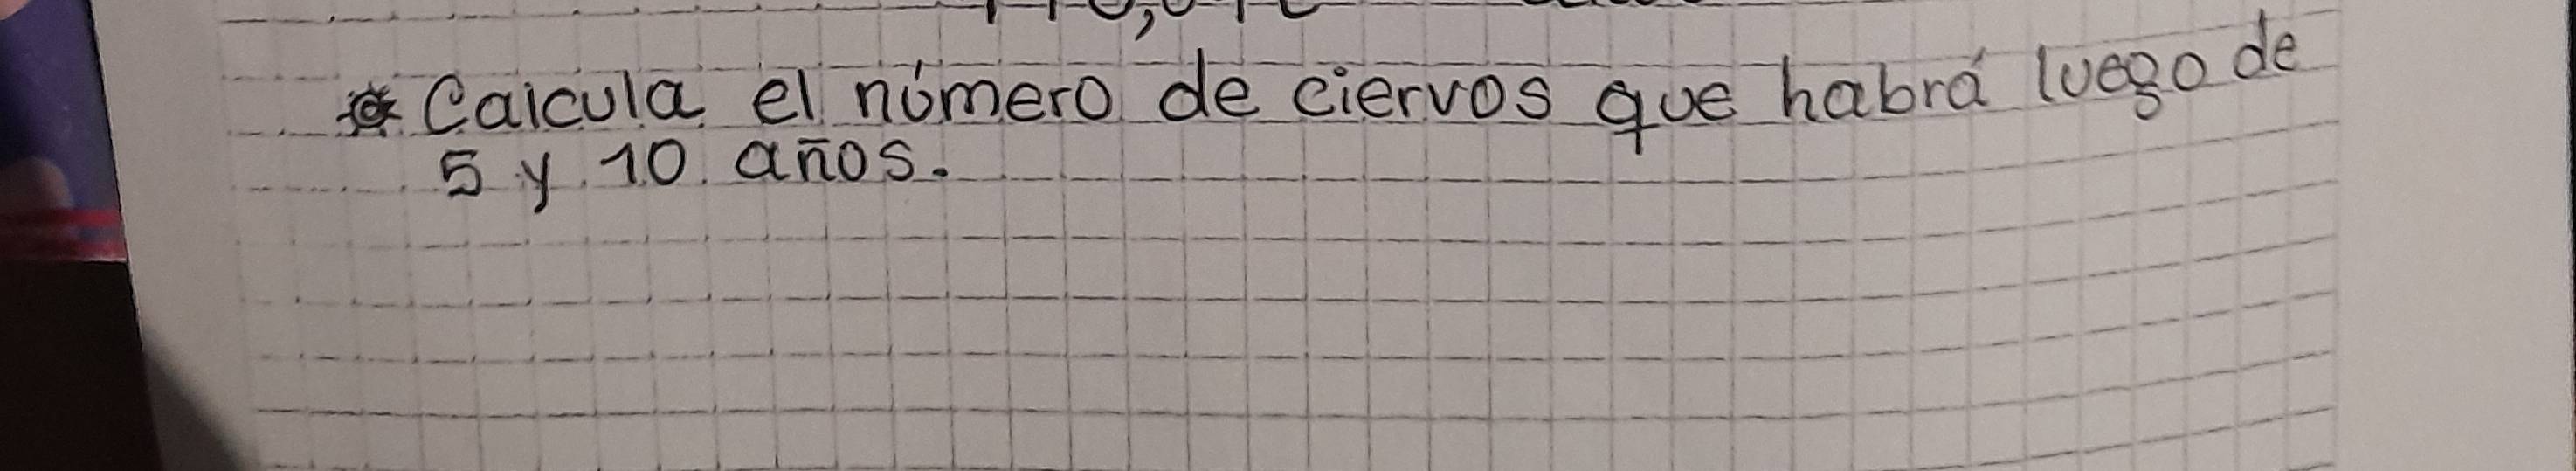 Calcula el número de ciervos que habrá luego de
5 y 10 años.